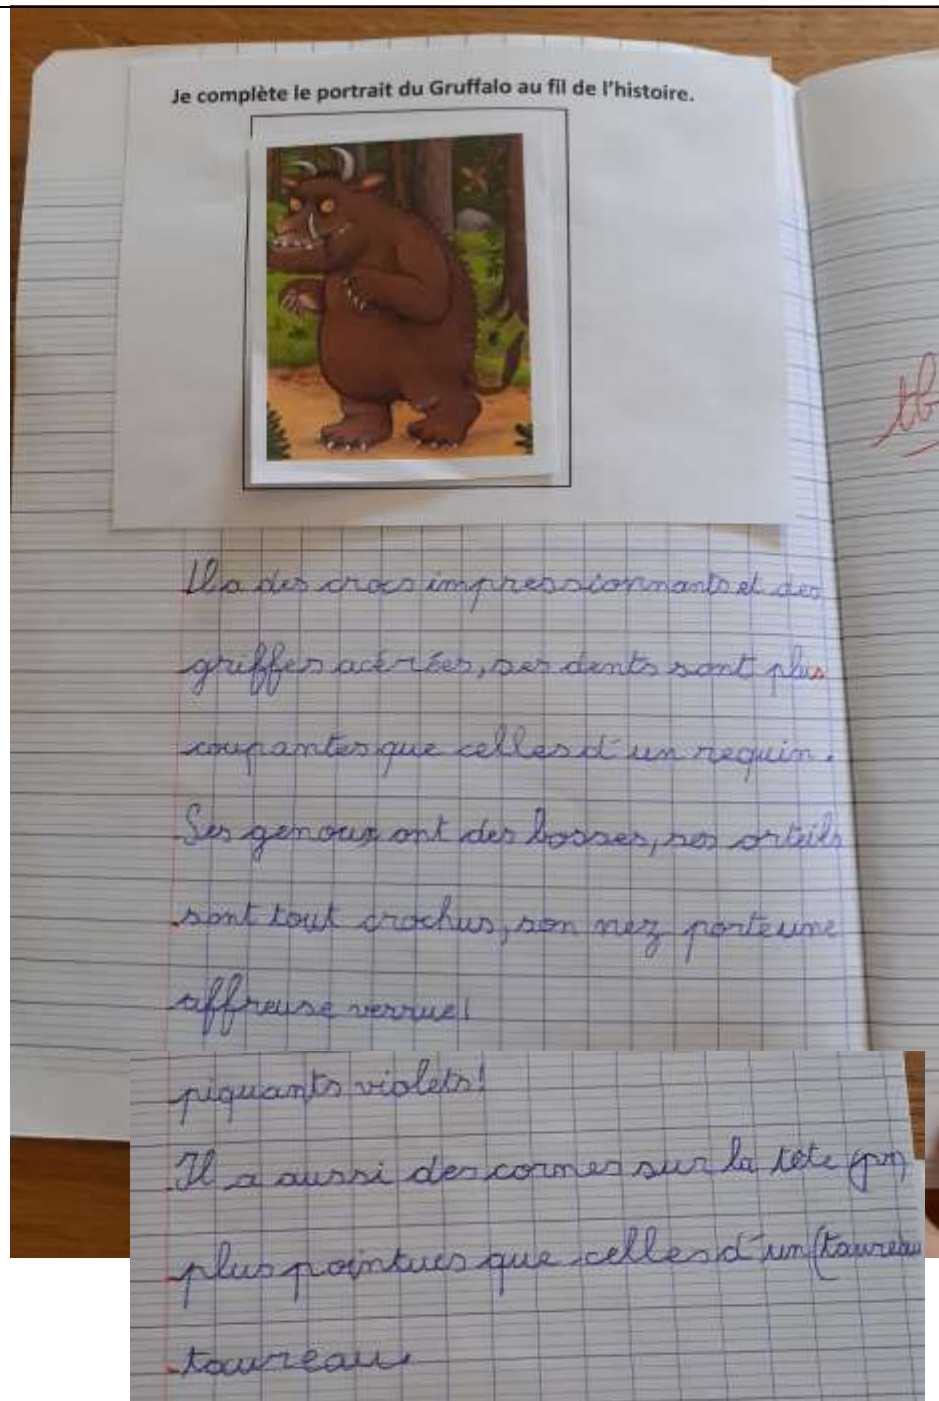 Je complète le portrait du Gruffalo au fil de l'histoire.
tb
Il a des crocs impressionnants et des
griffes acérées, ses dents sont plus
coupantes que celles d'un requin.
Ses genoux ont des bosses, ses orteils
sont tout crochus, son nez porte une
affreuse verrue!
piquants violets!
Il a aussi des cornes sur la tête
plus pointues que celles d'un (taureau
taureau.